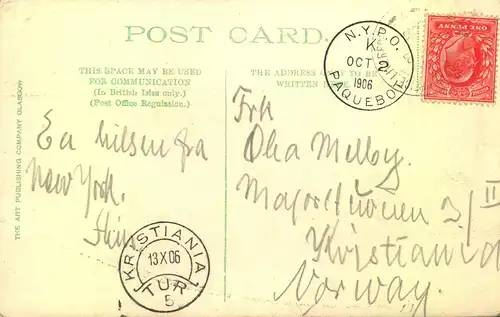 POST CARD.
THIS SPACE MAY BE USED
FOR COMMUNICATION
(In British Isles only.)
(Post Office Regulation.)
THE ADDRESS ONLY TO BE
WRITTEN
THE ART PUBLISHING COMPANY GLASGOW
N.Y.P.O.
K
OCT 2
1906
PAQUEBOT
ONE PENNY
En hilsen fra
New York.
Frk
Olea Melby.
Kristiania
Norway.
KRISTIANIA
13 X 06
TUR
5